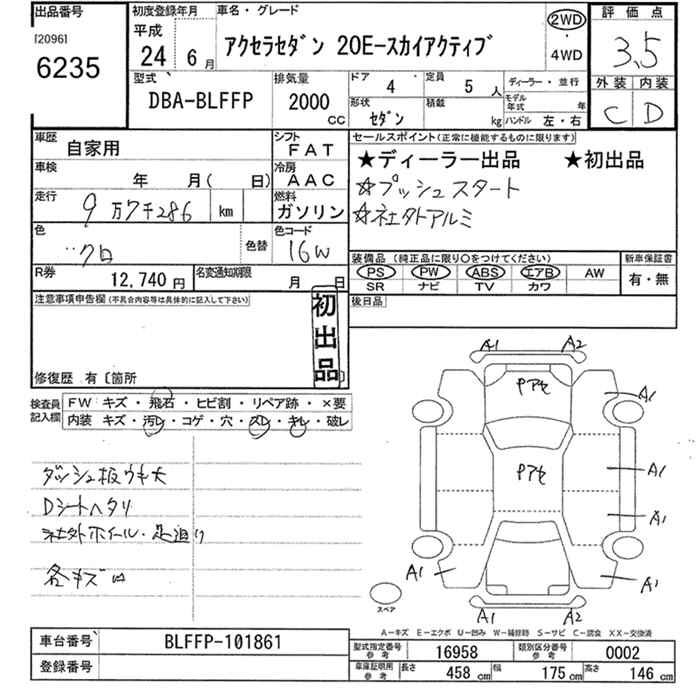 出品番号 初度登録年月 車名・グレード 評価点
[2096] 6235
平成 24 年 6 月 アクセラセダン 20E-スカイアクティブ 2WD ・ 4WD 3.5
外装 内装
C D
型式 DBA-BLFFP 排気量 2000 CC ドア 4 定員 5 人 ディーラー・並行
形状 セダン 積載 kg モデル年式 年 ハンドル 左・右
車歴 自家用 シフト FAT セールスポイント(正常に機能するものに限ります)
★ディーラー出品 ★初出品
車検 年 月( 日) 冷房 AAC
☆プッシュスタート
走行 9万7千286 km 燃料 ガソリン
☆社外アルミ
色 クロ 色替 色コード 16W
装備品 (純正品に限り○をつけてください) 新車保証書
PS PW ABS エアB AW 有・無
SR ナビ TV カワ
R券 12,740 円 名変通知期限 月 日
後日品
注意事項申告欄(不具合内容等は具体的に記入して下さい)
初出品
修復歴 有〔箇所 〕
検査員記入欄 FW キズ・飛石・ヒビ割・リペア跡・×要
内装 キズ・汚レ・コゲ・穴・スレ・キレ・破レ
ダッシュ板ウキ大
Dシートヘタリ
社外ホイール・
各キズ
A1 A2
Pアセ
A1
Pアセ A1
A1
A1 A1
A1 A2
スペア
A-キズ E-エクボ U-凹み W-補修跡 S-サビ C-腐食 XX-交換済
車台番号 BLFFP-101861
登録番号
型式指定番号 参考 16958 類別区分番号 参考 0002
車庫証明用 参考 長さ 458 cm 幅 175 cm 高さ 146 cm